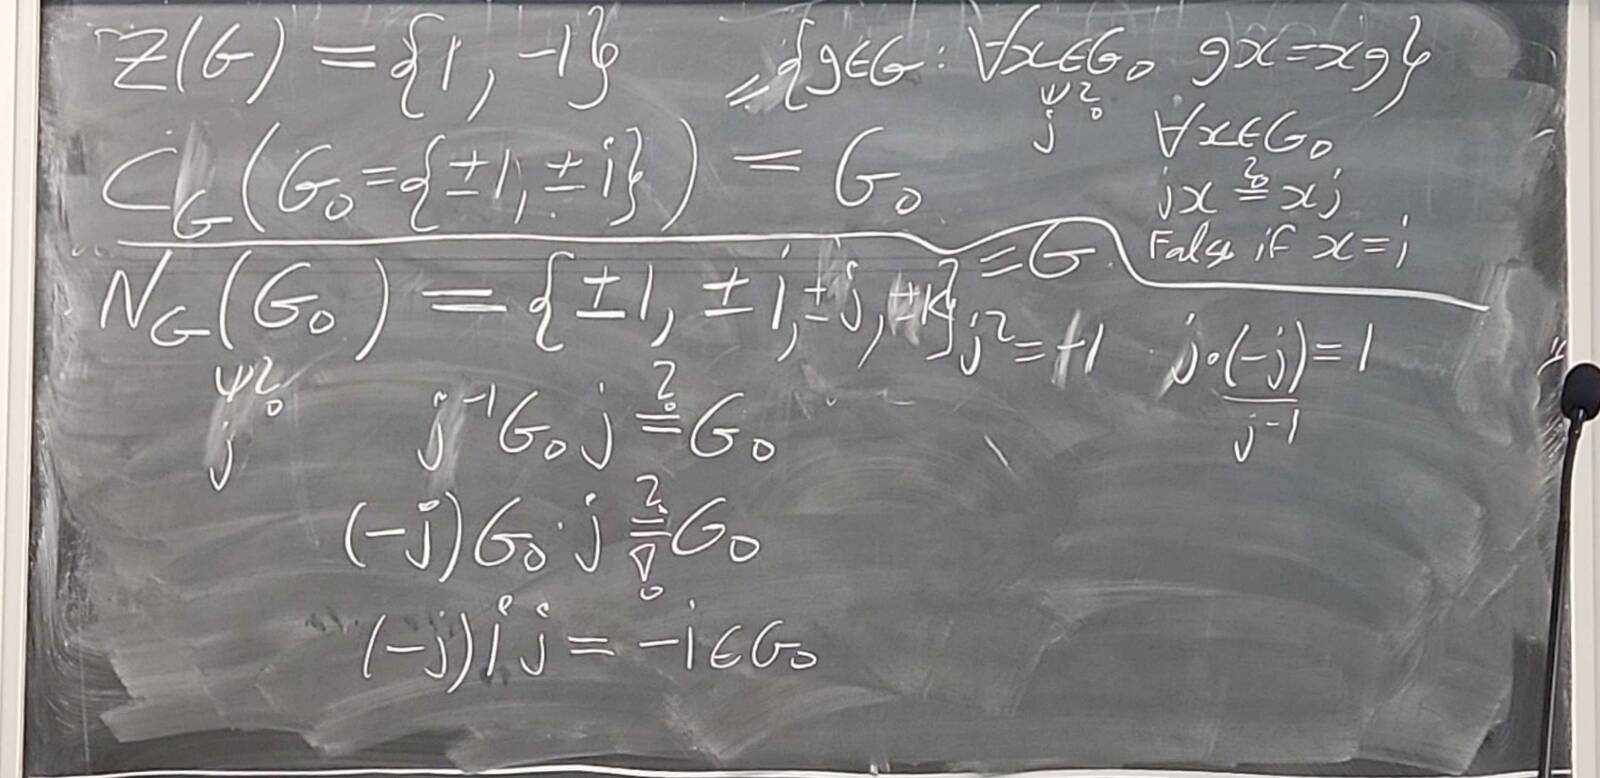 Z(G) = {1, -1}
= {g∈G : ∀x∈G₀ gx=xg}
j ∈?
C_G(G₀={±1,±i}) = G₀
∀x∈G₀
jx ≟ xj
False if x=i
N_G(G₀) = {±1, ±i, ±j, ±k} = G
j² = -1
j·(-j) = 1
j⁻¹
j ∈?
j⁻¹G₀j ≟ G₀
(-j)G₀·j ≟ G₀
(-j)ij = -i∈G₀